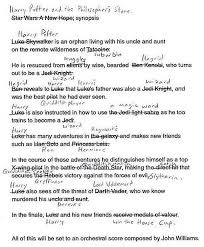 Harry Potter and the Philosopher's Stone
Star Wars: A New Hope; synopsis
Harry Potter
Luke Skywalker is an orphan living with his uncle and aunt
suburbia
on the remote wilderness of Tatooine.
Hagrid
He is rescued from aliens by wise, bearded Ben Kenobi, who turns
wizard
out to be a Jedi Knight.
Hagrid Harry Harry's wizard
Ben reveals to Luke that Luke's father was also a Jedi Knight, and
was the best pilot he had ever seen.
Harry a magic wand
Luke is also instructed in how to use the Jedi light sabre as he too
wizard
trains to become a Jedi.
Harry Hogwarts
Luke has many adventures in the galaxy and makes new friends
Ron Hermione
such as Han Solo and Princess Leia.
In the course of these adventures he distinguishes himself as a top
Quidditch match
X-wing pilot in the battle of the Death Star, making the direct hit that
Slytherin.
secures the Rebels victory against the forces of evil.
Harry Lord Voldemort
Luke also sees off the threat of Darth Vader, who we know
murdered his uncle and aunt.
parents
In the finale, Luke and his new friends receive medals of valour.
Harry win the House Cup.
All of this will be set to an orchestral score composed by John Williams.